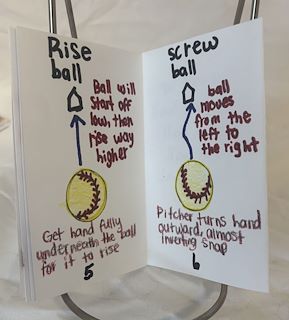 Rise
ball
Ball will
start off
low, then
rise way
higher
Get hand fully
underneath the ball
for it to rise
5
screw
ball
ball
moves
from the
left to
the right
Pitcher turns hand
outward, almost
inverting snap
6